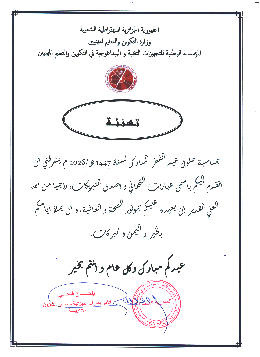 الجمهورية الجزائرية الديمقراطية الشعبية
وزارة التكوين والتعليم المهنيين
المؤسسة الوطنية للتجهيزات التقنية والبيداغوجية في التكوين والتعليم المهنيين
تهنئة
بمناسبة حلول عيد الفطر المبارك لسنة 1447 هـ/2026 م يشرفني أن
أتقدم إليكم بأسمى عبارات التهاني و أصدق التبريكات، راجيا من الله
العلي القدير أن يعيده عليكم بموفور الصحة و العافية، و أن
بالخير و اليمن و البركات.
عيدكم مبارك وكل عام و أنتم بخير